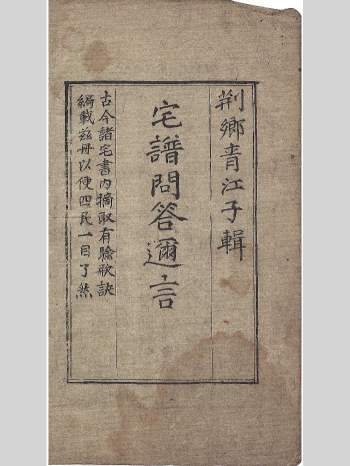 荆鄉青江子輯
宅譜問答邇言
古今諸宅書內摘取有驗歌訣
編載兹冊以便四民一目了然